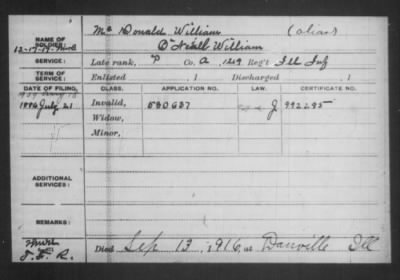 Mc Donald William (alias)
NAME OF SOLDIER: O'Neall William
12-17-17
SERVICE: Late rank, P Co. A, 149 Reg't Ill Inf
TERM OF SERVICE: Enlisted , 1 Discharged , 1
DATE OF FILING. CLASS. APPLICATION NO. LAW. CERTIFICATE NO.
1886 July 21 Invalid, 580637 J 992295
Widow,
Minor,
ADDITIONAL SERVICES:
REMARKS:
J. F. R. Died Sep 13, 1916, at Danville Ill